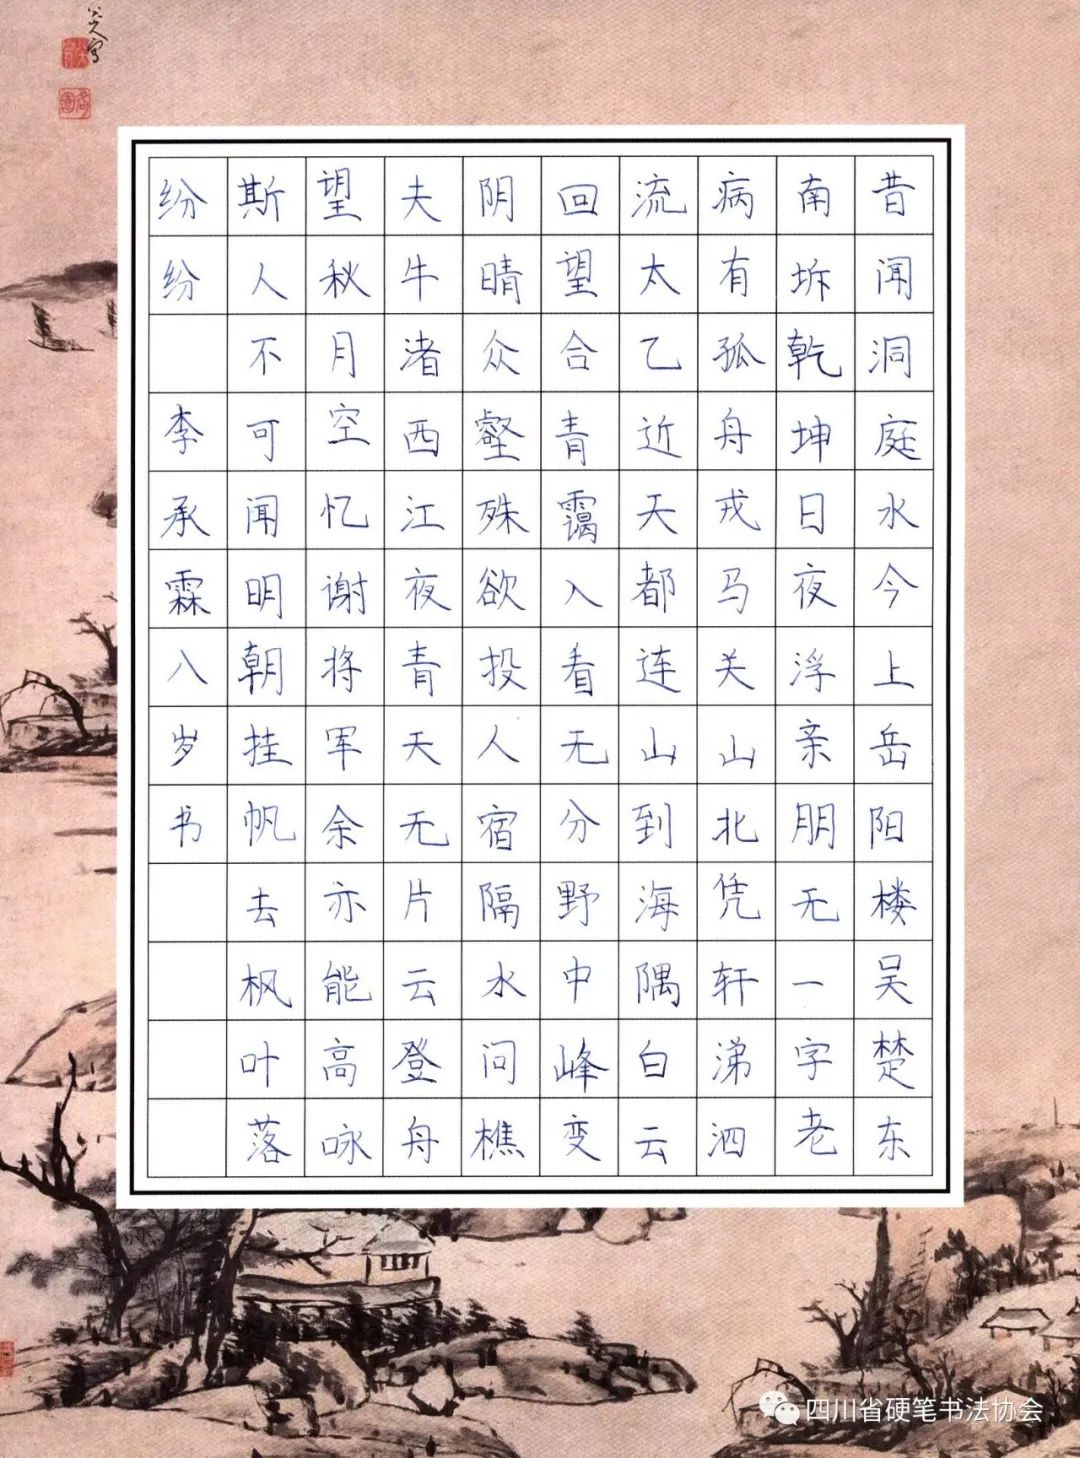 昔闻洞庭水今上岳阳楼吴楚东
南坼乾坤日夜浮亲朋无一字老
病有孤舟戎马关山北凭轩涕泗
流太乙近天都连山到海隅白云
回望合青霭入看无分野中峰变
阴晴众壑殊欲投人宿隔水问樵
夫牛渚西江夜青天无片云登舟
望秋月空忆谢将军余亦能高咏
斯人不可闻明朝挂帆去枫叶落
纷纷 李承霖八岁书
八大山人写
四川省硬笔书法协会